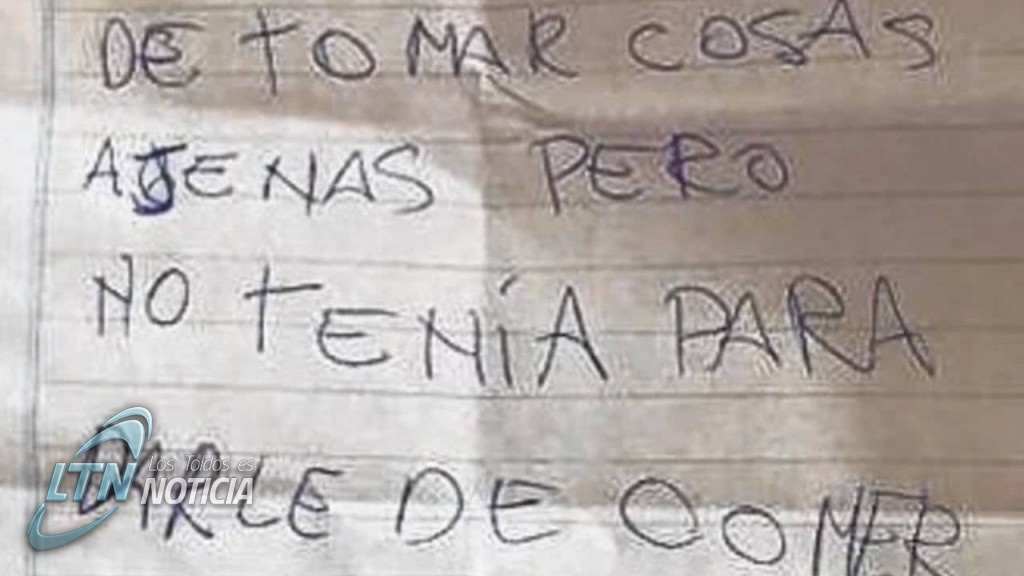 DE TOMAR COSAS
AJENAS PERO
NO TENÍA PARA
DARLE DE COMER
LTN Los Toldos es
NOTICIA